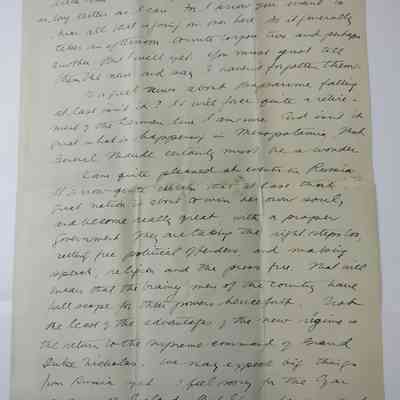 as long letters as I can. For I know you want to
hear all that is going on over here. So it generally
takes an afternoon to write to you two and perhaps
another but I will yet. You must just tell
them the news and say I haven't forgotten them.
Is it great news about Bapaume falling
at last isn't it? It will force quite a retire-
ment of the German line I am sure. And isn't it
great what is happening in Mesopotamia. That
General Maude certainly must be a wonder.
I am quite pleased at events in Russia
It is now quite certain that at last that
great nation is about to win her own soul,
and become really great with a proper
government. They are taking the right steps too,
setting free political offenders and making
speech, religion and the press free. That will
mean that the brainy men of the country have
full scope for their powers henceforth. Not
the least of the advantages of the new régime is
the return to the supreme command of Grand
Duke Nicholas. We may expect big things
from Russia yet. I feel sorry for the Czar